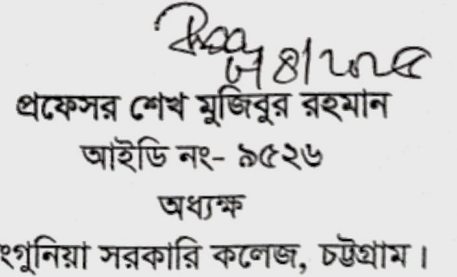 প্রফেসর শেখ মুজিবুর রহমান
আইডি নং- ৯৫২৬
অধ্যক্ষ
ংগুনিয়া সরকারি কলেজ, চট্টগ্রাম।